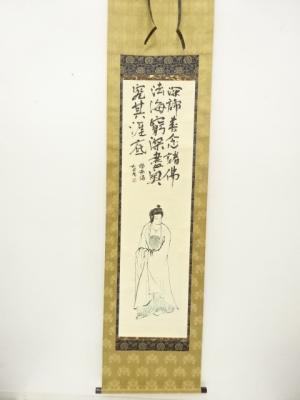 深諦善念諸佛
法海窮深盡奧
究其涯底